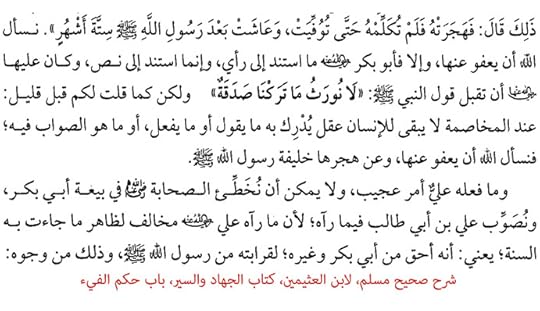 ذَلِكَ قَالَ: فَهَجَرَتْهُ فَلَمْ تُكَلِّمْهُ حَتَّى تُوُفِّيَتْ، وَعَاشَتْ بَعْدَ رَسُولِ اللَّهِ ﷺ سِتَّةَ أَشْهُرٍ». نسأل
الله أن يعفو عنها، وإلا فأبو بكر رضي الله عنه ما استند إلى رأي، وإنما استند إلى نص، وكان عليها
رضي الله عنها أن تقبل قول النبي ﷺ: «لَا نُورَثُ مَا تَرَكْنَا صَدَقَةٌ» ولكن كما قلت لكم قبل قليل:
عند المخاصمة لا يبقى للإنسان عقل يُدْرِك به ما يقول أو ما يفعل، أو ما هو الصواب فيه؛
فنسأل الله أن يعفو عنها، وعن هجرها خليفة رسول الله ﷺ.
وما فعله عليٌّ أمر عجيب، ولا يمكن أن نُخَطِّئ الصحابة رضي الله عنهم في بيعة أبي بكر،
ونُصَوِّب علي بن أبي طالب فيما رآه؛ لأن ما رآه علي رضي الله عنه مخالف لظاهر ما جاءت به
السنة؛ يعني: أنه أحق من أبي بكر وغيره؛ لقرابته من رسول الله ﷺ، وذلك من وجوه:
شرح صحيح مسلم، لابن العثيمين، كتاب الجهاد والسير، باب حكم الفيء